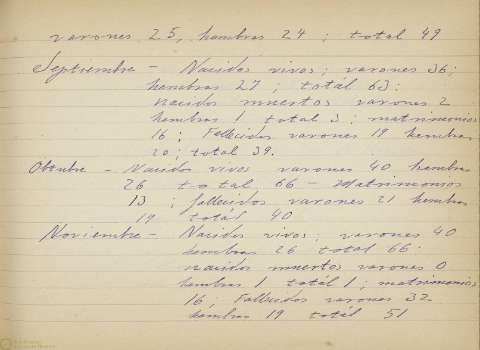 varones 25, hembras 24; total 49
Septiembre - Nacidos vivos; varones 36;
hembras 27; totál 63:
nacidos muertos varones 2
hembras 1 total 3; matrimonios
16; Fallecidos varones 19 hembras
20; total 39.
Obtubre - Nacidos vivos varones 40 hembras
26 total 66 - Matrimonios
13; fallecidos varones 21 hembras
19 totál 40
Noviembre - Nacidos vivos; varones 40
hembras 26 total 66:
nacidos muertos varones 0
hembras 1 totál 1; matrimonios
16; Fallecidos varones 32
hembras 19 totál 51